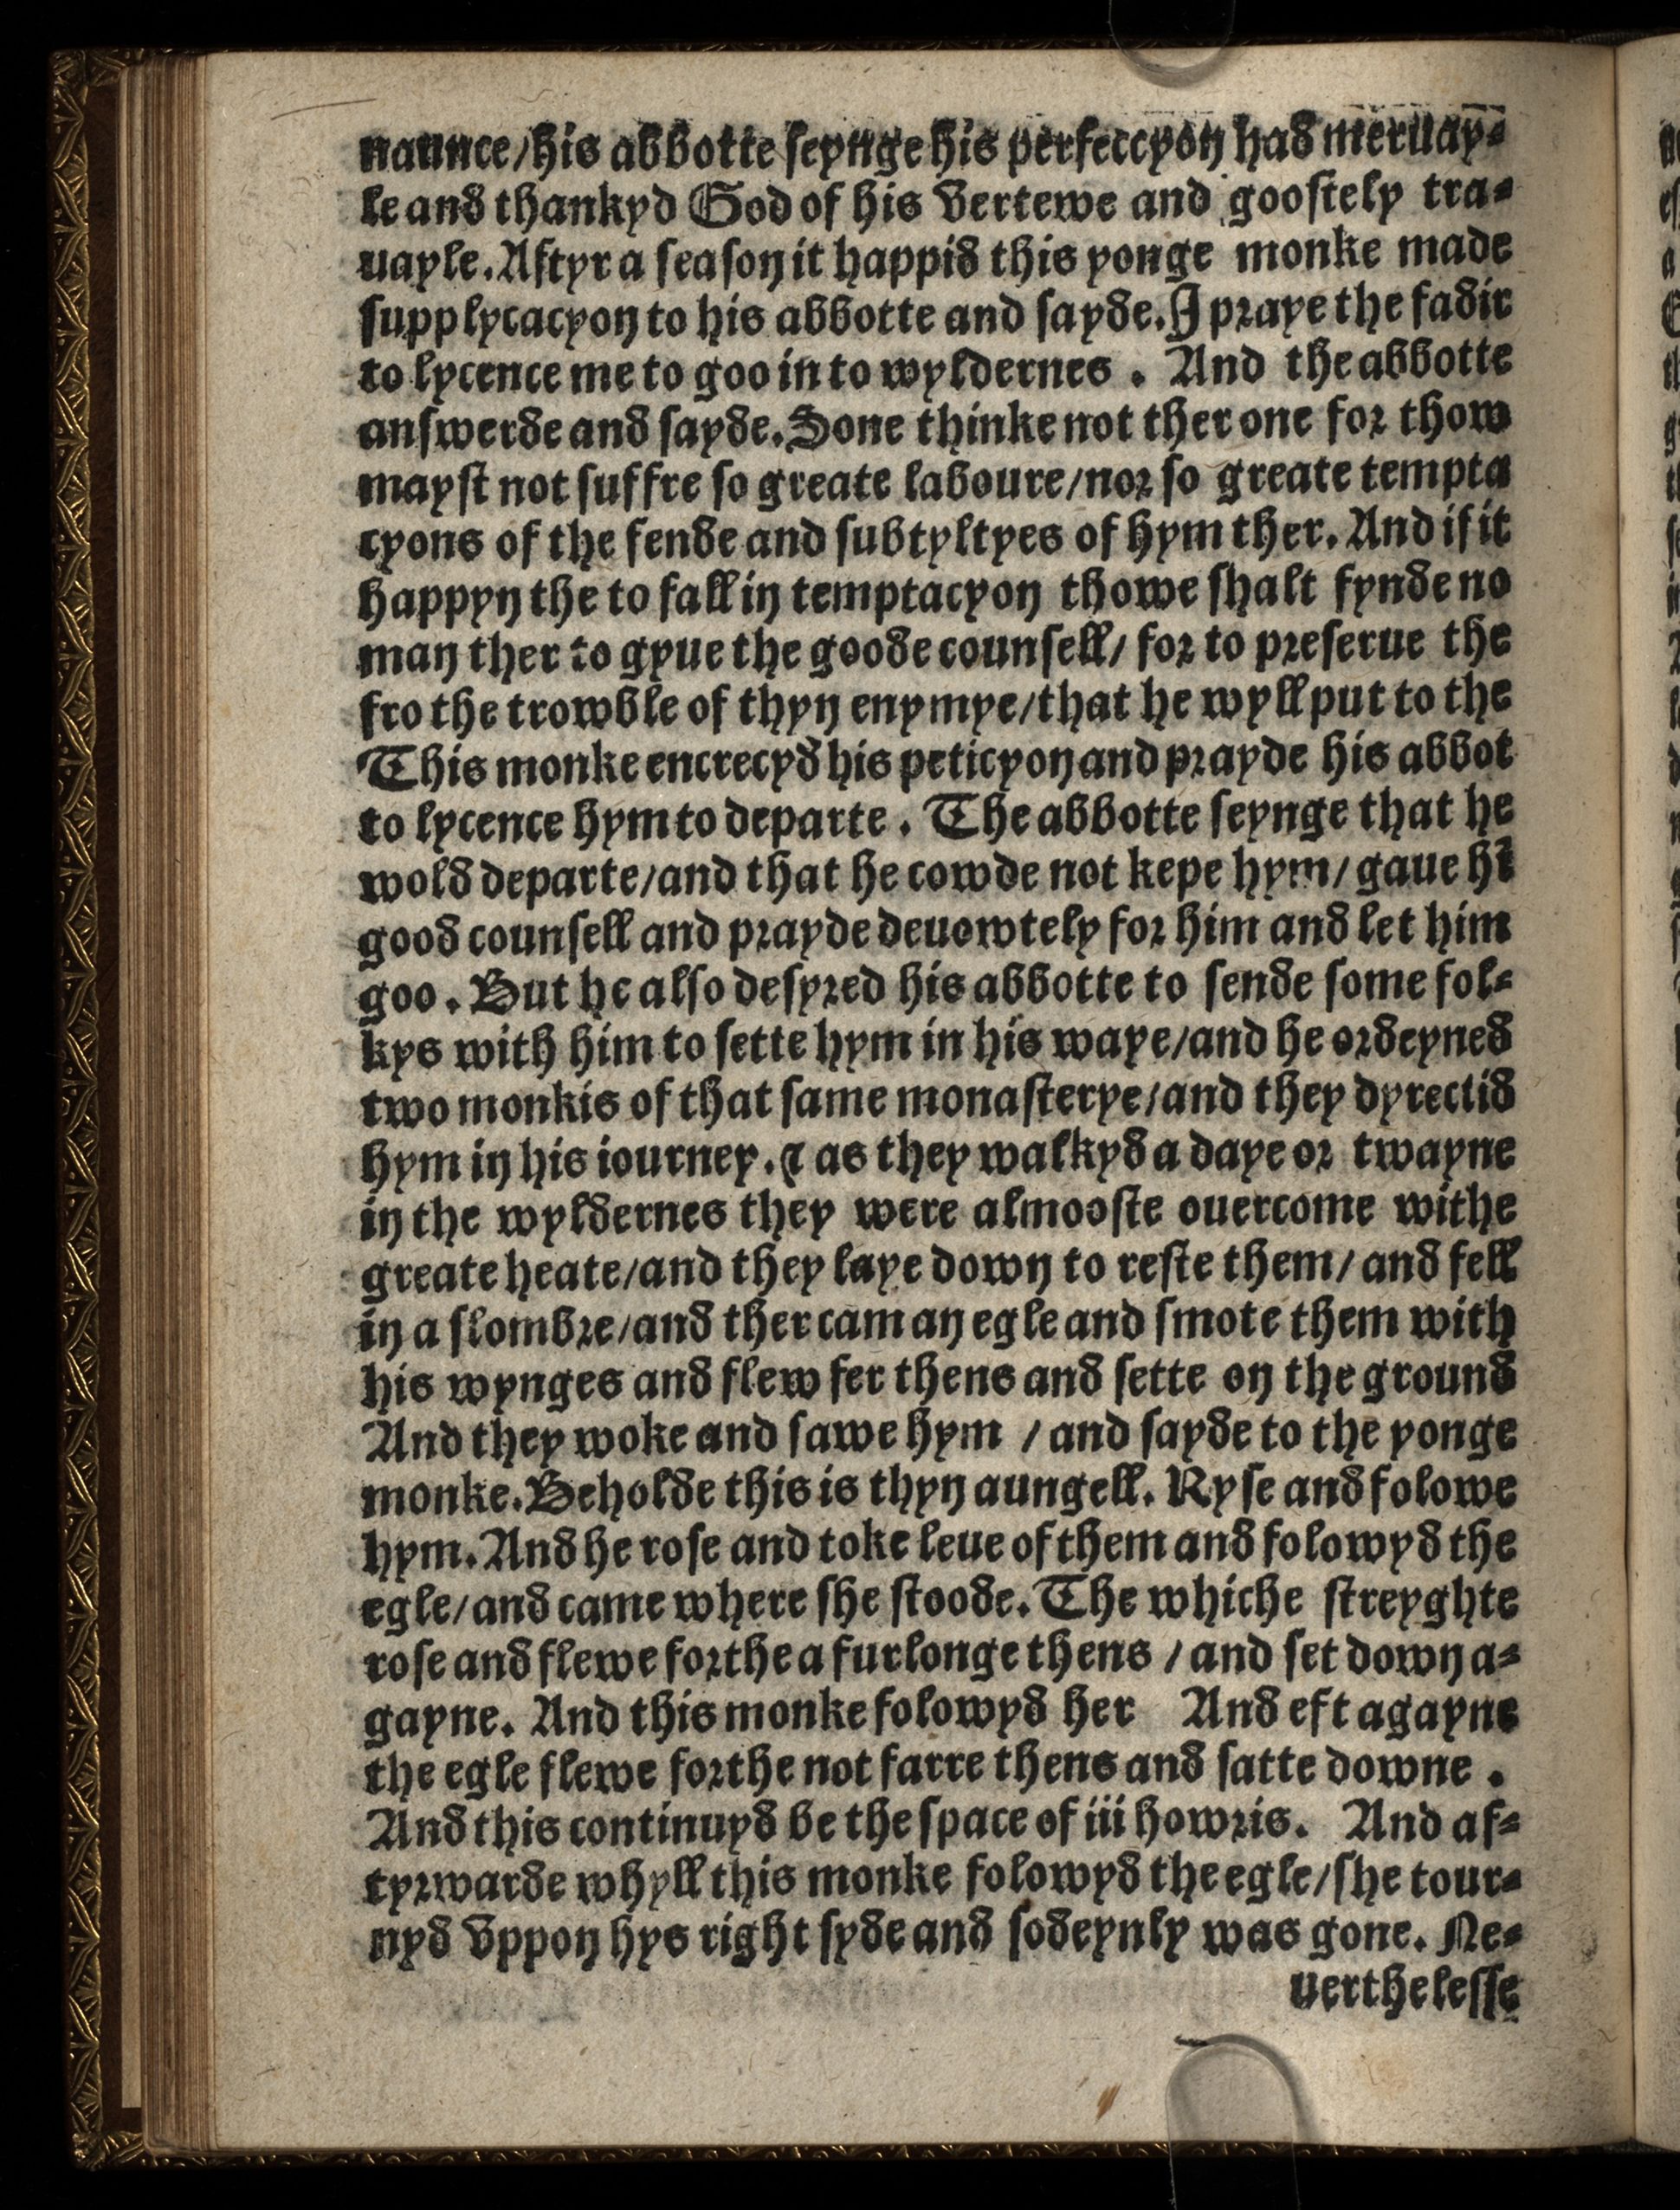 naunce/his abbotte seynge his perfeccyon had meruay-
le and thankyd God of his vertewe and goostely tra-
uayle. Aftyr a season it happid this yonge monke made
supplycacyon to his abbotte and sayde. I praye the fadir
to lycence me to goo in to wyldernes . And the abbotte
answerde and sayde. Sone thinke not ther one for thow
mayst not suffre so greate laboure/nor so greate tempta
cyons of the fende and subtyltyes of hym ther. And if it
happyn the to fall in temptacyon thowe shalt fynde no
man ther to gyue the goode counsell/ for to preserue the
fro the trowble of thyn enymye/that he wyll put to the
This monke encrecyd his peticyon and prayde his abbot
to lycence hym to departe . The abbotte seynge that he
wold departe/and that he cowde not kepe hym/ gaue hī
good counsell and prayde deuowtely for him and let him
goo . But he also desyred his abbotte to sende some fol-
kys with him to sette hym in his waye/and he ordeyned
two monkis of that same monasterye/and they dyrectid
hym in his iourney. ⁊ as they walkyd a daye or twayne
in the wyldernes they were almooste ouercome withe
greate heate/and they laye down to reste them/ and fell
in a slombre/and ther cam an egle and smote them with
his wynges and flew fer thens and sette on the ground
And they woke and sawe hym / and sayde to the yonge
monke. Beholde this is thyn aungell. Ryse and folowe
hym. And he rose and toke leue of them and folowyd the
egle/and came where she stoode. The whiche streyghte
rose and flewe forthe a furlonge thens / and set down a-
gayne. And this monke folowyd her And eft agayne
the egle flewe forthe not farre thens and satte downe .
And this continuyd be the space of iii howris. And af-
tyrwarde whyll this monke folowyd the egle/she tour-
nyd vppon hys right syde and sodeynly was gone. Ne-
uerthelesse